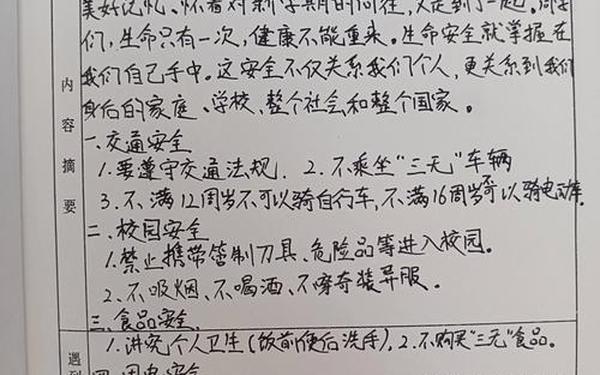 美好记忆、怀着对新学期的向往，又走到了一起。同学
们，生命只有一次，健康不能重来。生命安全就掌握在
我们自己手中。这安全不仅关系我们个人，更关系到我们
身后的家庭、学校、整个社会和整个国家。
内容摘要
一、交通安全
1.要遵守交通法规. 2.不乘坐“三无”车辆
3.不满12周岁不可以骑自行车,不满16周岁不可以骑电动车.
二、校园安全
1.禁止携带管制刀具、危险品等进入校园。
2.不吸烟、不喝酒、不穿奇装异服。
三、食品安全
1.讲究个人卫生(饭前便后洗手),2.不购买“三无”食品。
遇到
四、用电安全